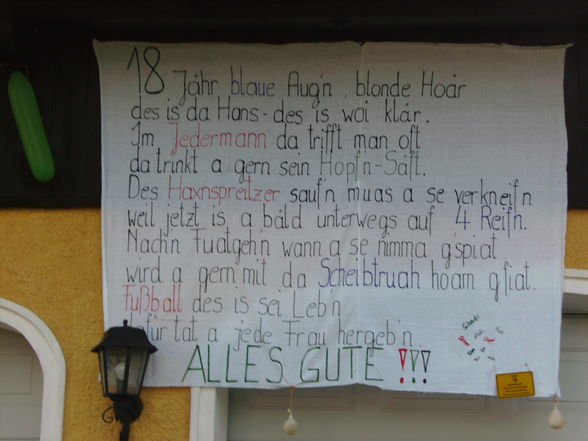 18 Jåhr blaue Aug'n, blonde Hoår
des is da Hans - des is woi klår.
Im Jedermann då trifft man oft
da trinkt a gern sein Hopf'n-Såft.
Des Haxnspreitzer sauf'n muas a se verkneif'n
weil jetzt is a båld unterwegs auf 4 Reif'n.
Nach'n Fuatgeh'n wann a se nimma g'spiat
wird a gern mit da Scheibtruah hoam gfiat.
Fußball des is sei Leb'n
dafür tat a jede Frau hergeb'n
ALLES GUTE !!!
18